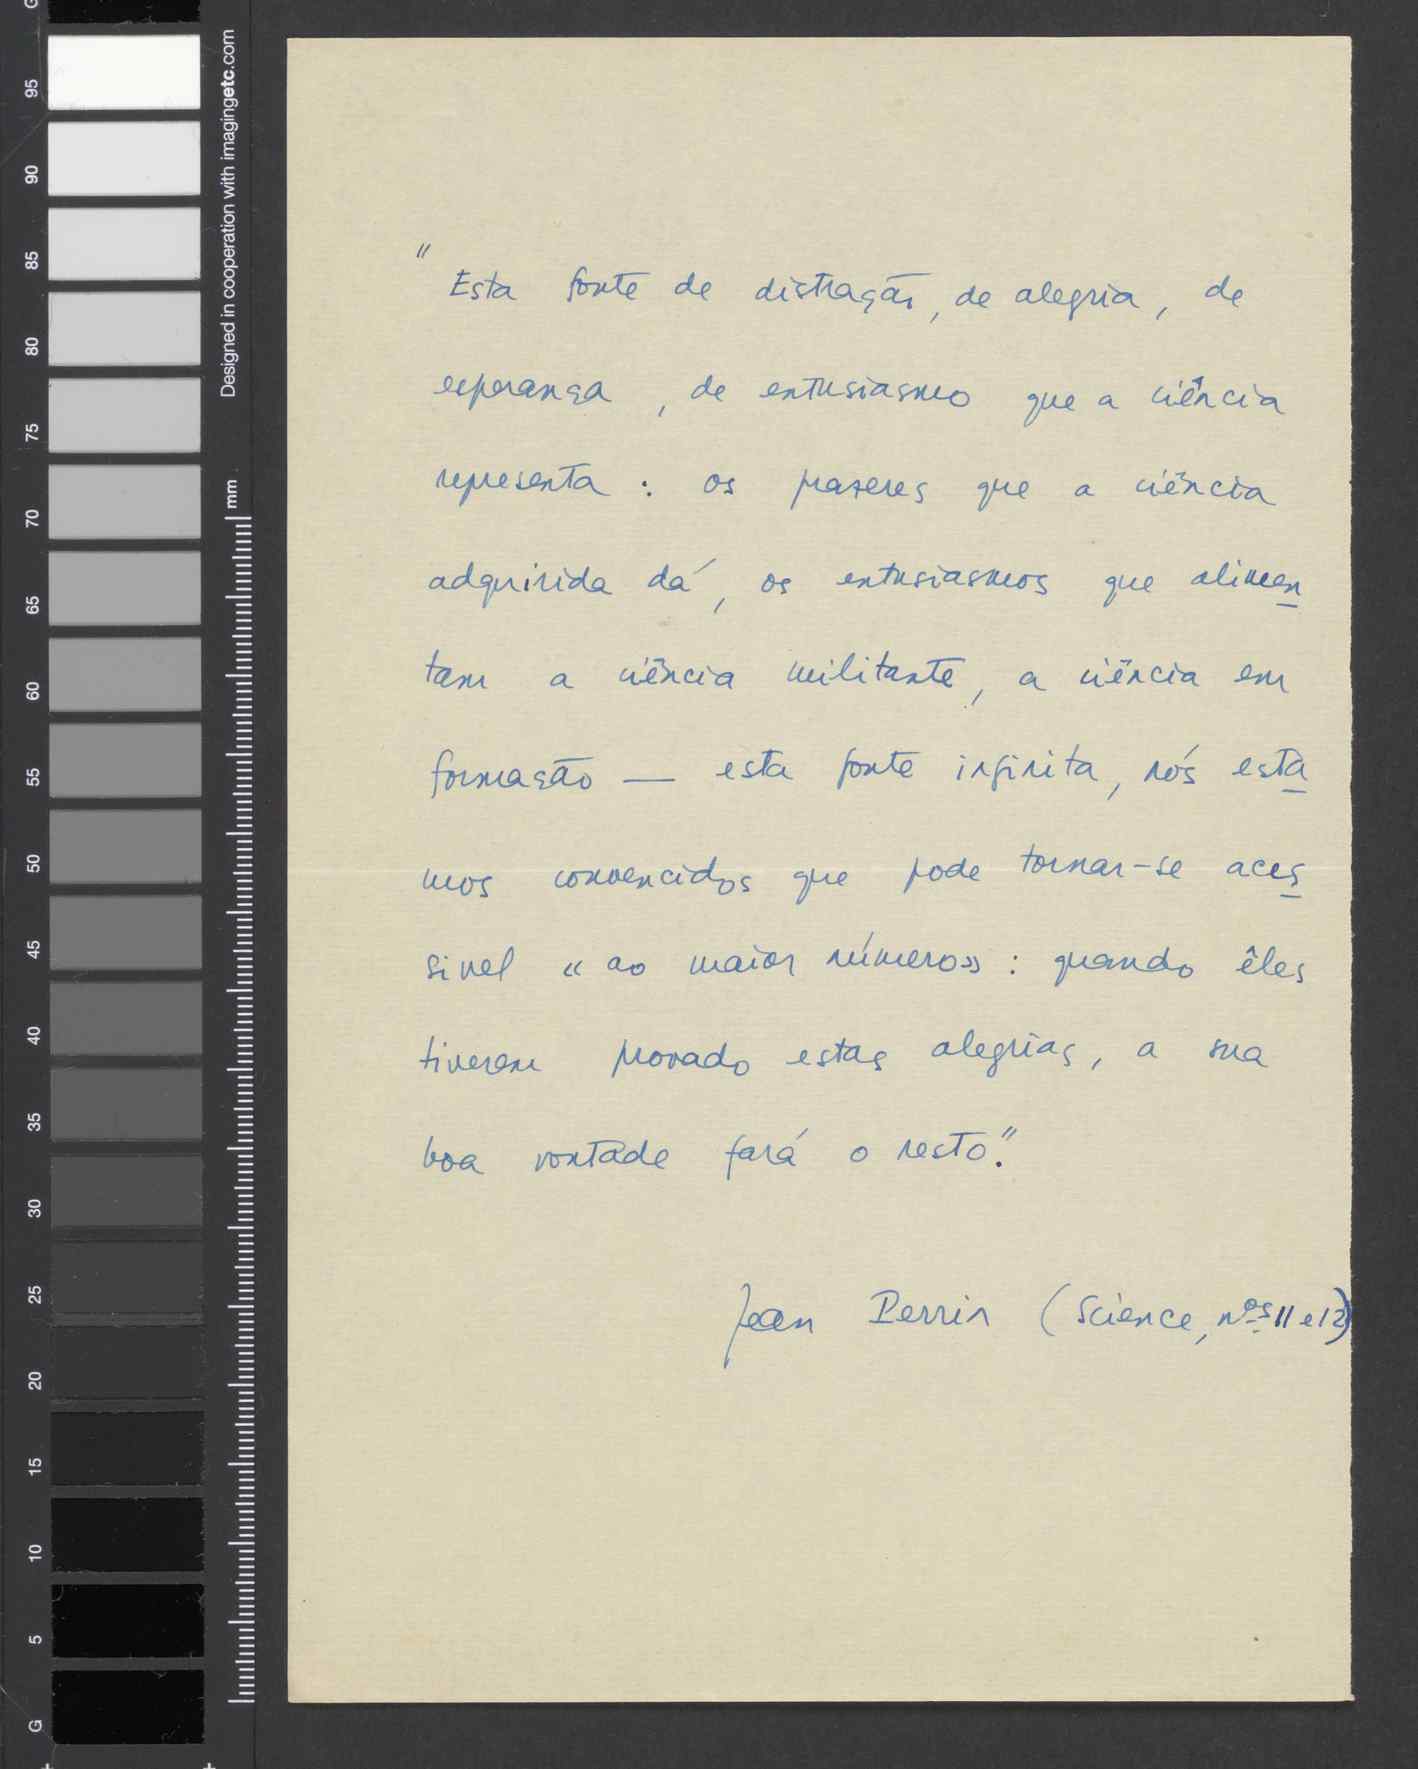 "Esta fonte de distração, de alegria, de
esperança, de entusiasmo que a ciência
representa: os prazeres que a ciência
adquirida dá, os entusiasmos que alimen
tam a ciência militante, a ciência em
formação — esta fonte infinita, nós esta
mos convencidos que pode tornar-se aces
sivel «ao maior número»: quando êles
tiverem provado estas alegrias, a sua
boa vontade fará o resto."
Jean Perrin (Science, nos 11 e 12)
Designed in cooperation with imagingetc.com
mm
G
95
90
85
80
75
70
65
60
55
50
45
40
35
30
25
20
15
10
5
G